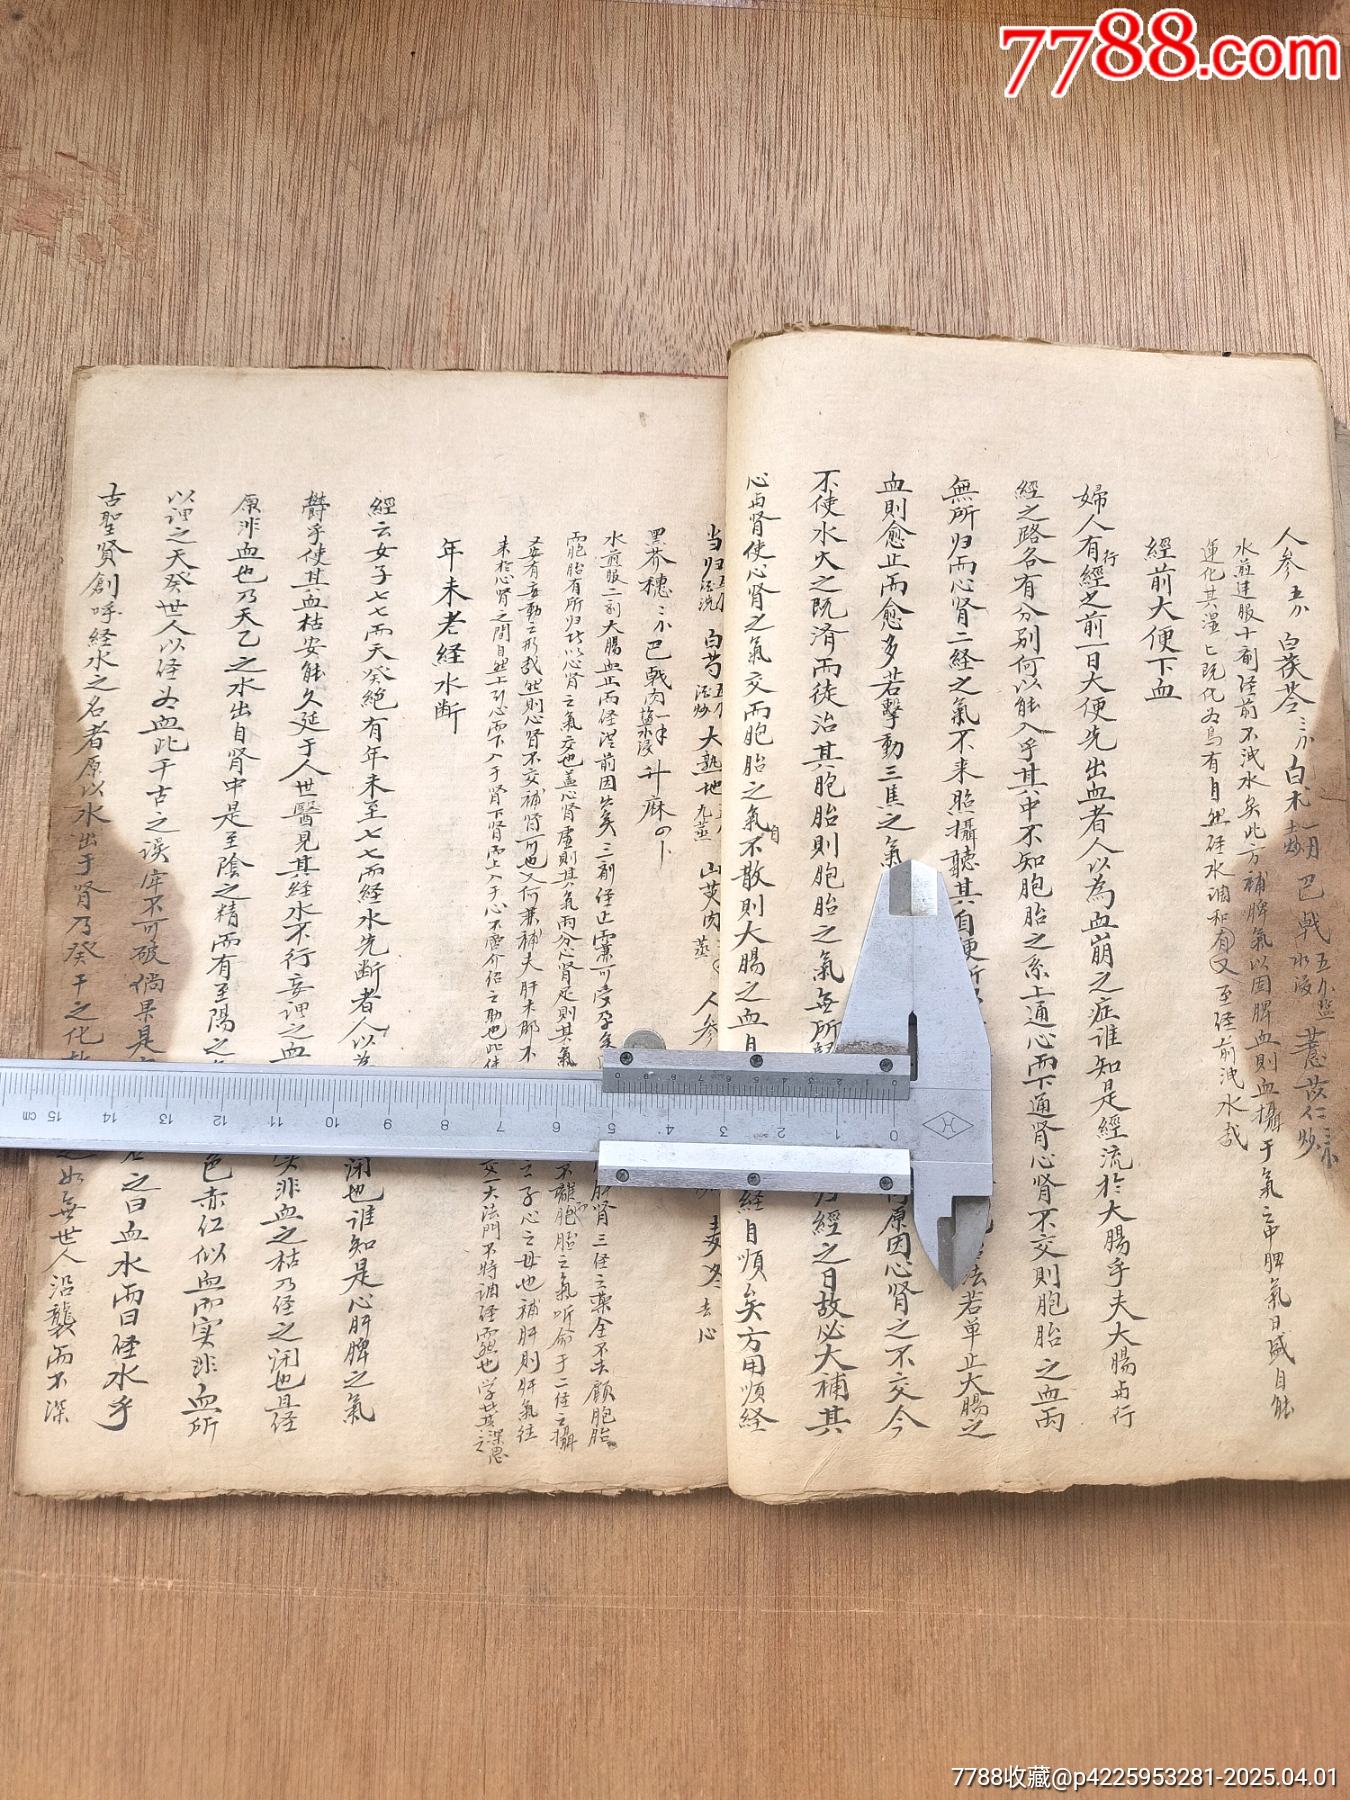 7788.com
人參五分白茯苓三分白朮一両土炒巴戟五分盐水浸薏苡仁三分炒
水煎連服十劑徑前不洩水矣此方補脾氣以固脾血則血攝于氣之中脾氣日盛自能
運化其濕匕既化為烏有自然徑水調和又至徑前洩水哉
經前大便下血
婦人有行經之前一日大便先出血者人以為血崩之症誰知是經流於大腸乎夫大腸与行
經之路各有分别何以能入乎其中不知胞胎之系上通心而下通肾心肾不交則胞胎之血两
無所归而心肾二经之氣不来照攝聽其自便所
法若单止大腸之
血則愈止而愈多若擊動三焦之氣
原因心肾之不交今
不使水火之既濟而徒治其胞胎則胞胎之氣無所
归經之日故必大補其
心与肾使心肾之氣交而胞胎之氣自不散則大腸之血自
經自順矣方用順経
当归五个酒洗白芍五个酒炒大熟地九蒸山萸肉蒸人参
麦冬去心
黑芥穗三分巴戟肉一両盐水浸升麻四卜
水煎服二剂大腸血止而徑從前因出矣三剂徑止兼可受孕
肝肾三徑之藥全不去顧胞胎
而胞胎有所归者以心肾之氣交也盖心肾虚則其氣两分心肾足則其氣
不離胞胎之氣听命于二徑之攝
又安有妄動之形哉然則心肾不交補心肾可也又何兼補夫肝木耶不
子心之母也補肝則肝氣往
来於心肾之間自然上引心而下入于肾下引肾而上入于心不啻介绍之助也此使
交一大法門不特調徑靈也学其深思之
年未老經水断
經云女子七七而天癸絶有年未至七七而經水先断者人以為
闭也誰知是心肝脾之氣
欝乎使其血枯安能久延于人世醫見其经水不行妄谓之血
非血之枯乃徑之闭也且徑
原非血也乃天乙之水出自肾中是至陰之精而有至陽之
色赤红似血而实非血所
以谓之天癸世人以徑为血此千古之误牢不可破倘果是
之曰血水而曰徑水乎
古聖贤創呼経水之名者原以水出于肾乃癸干之化
无如世人沿襲而不深
15 cm 14 13 12 11 10 9 8 7 6 5 4 3 2 1 0
7788收藏@p4225953281-2025.04.01